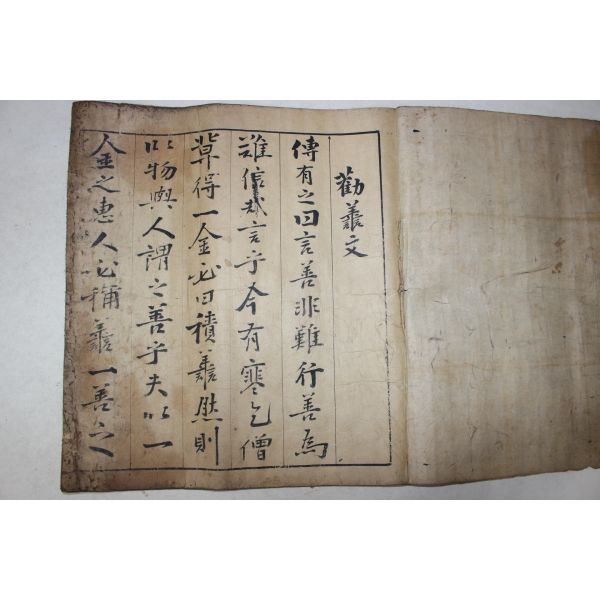 勸善文
傳有之曰言善非難行善爲
難信哉言乎今有寒乞僧
幕得一金必曰積善然則
以物與人謂之善乎夫以一
金之惠人必稱善一善之